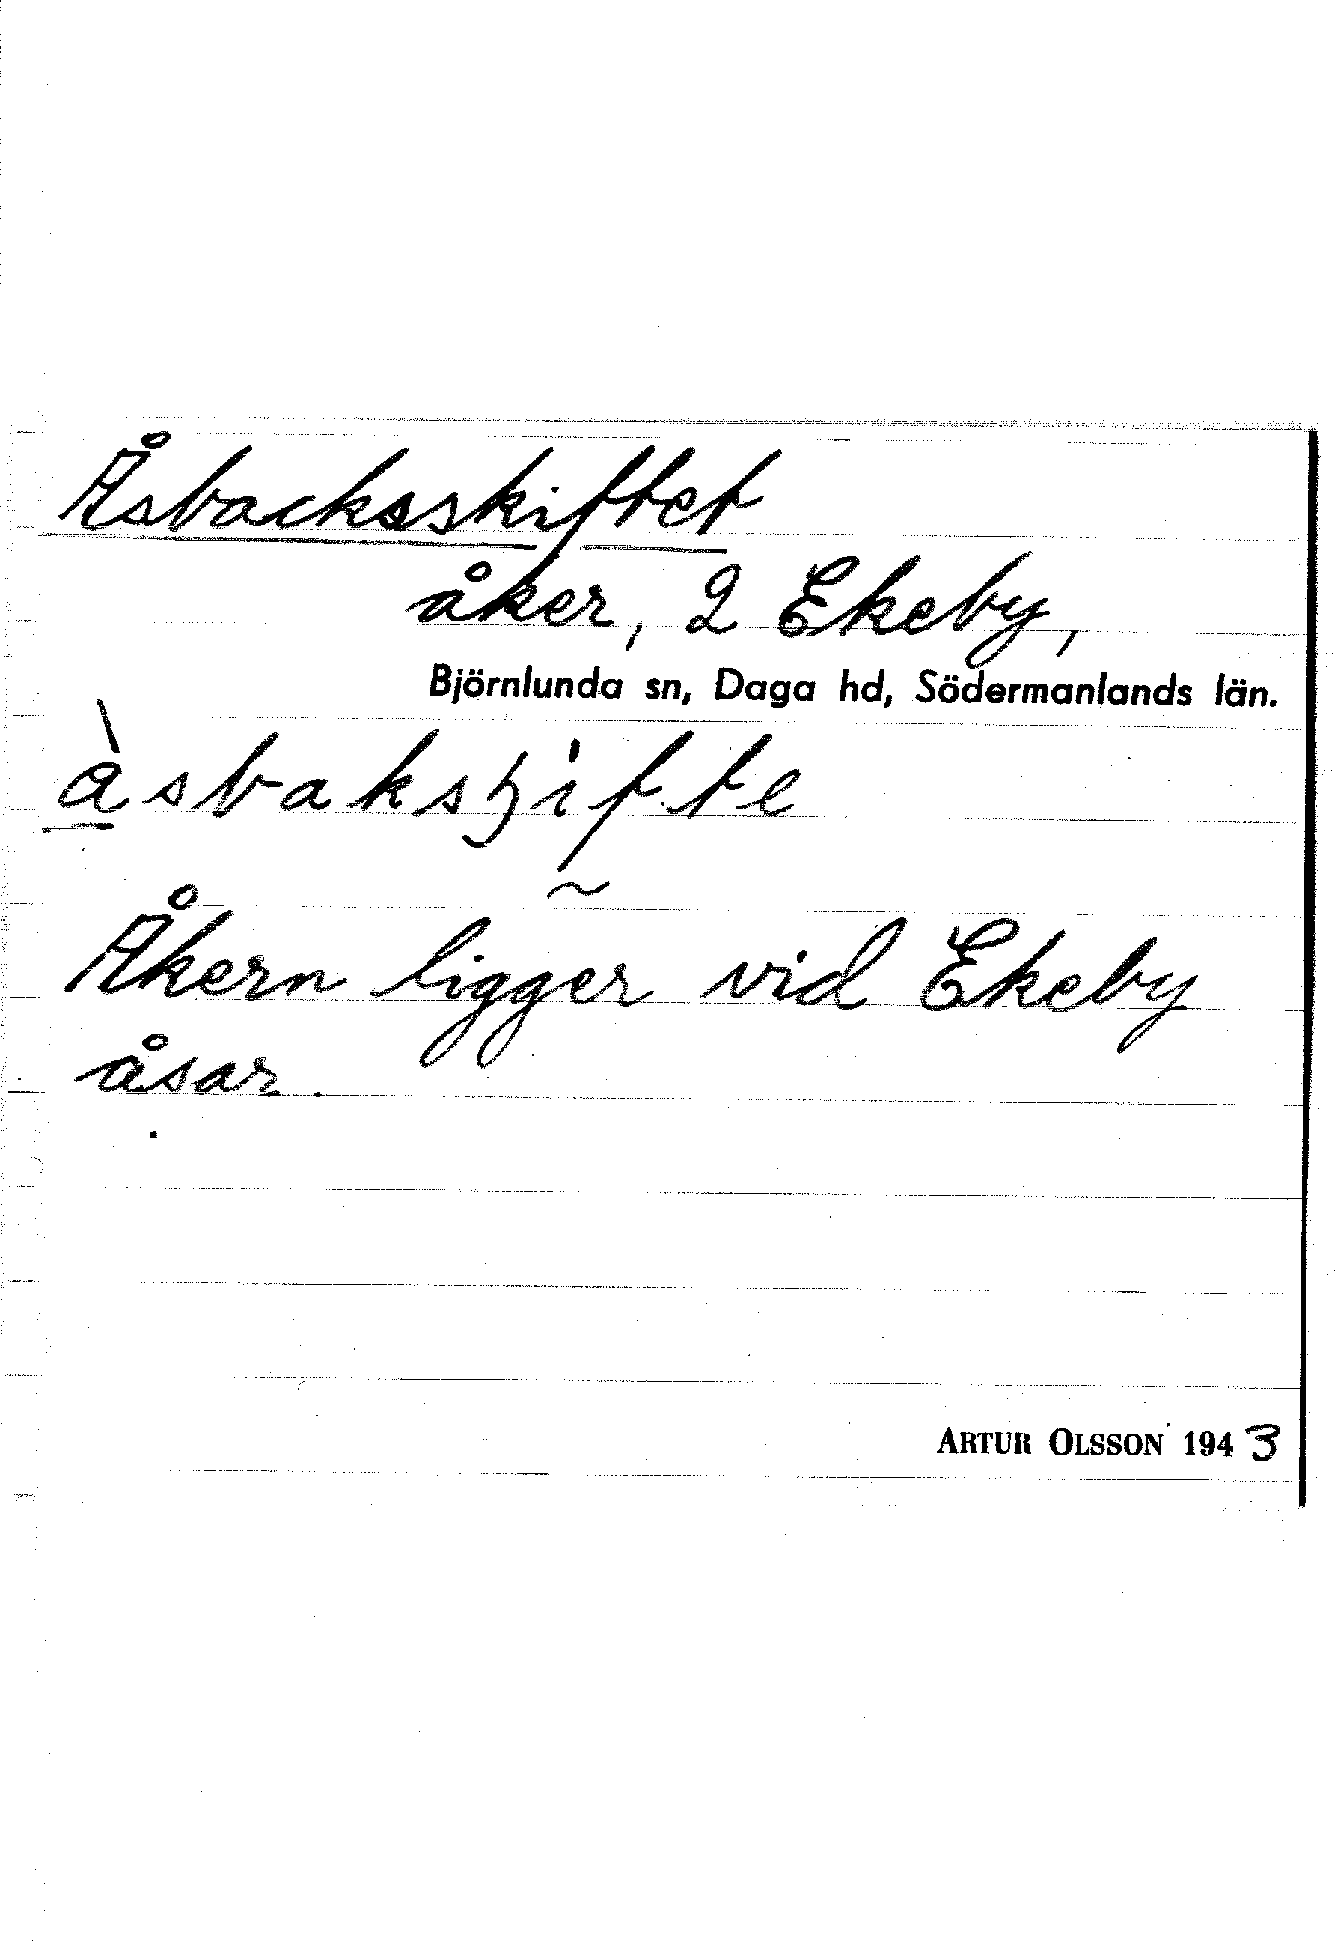 Åsbacksskiftet
åker, 2 Ekeby,
Björnlunda sn, Daga hd, Södermanlands län.
Åkern ligger vid Ekeby
åsar.
ARTUR OLSSON 1943